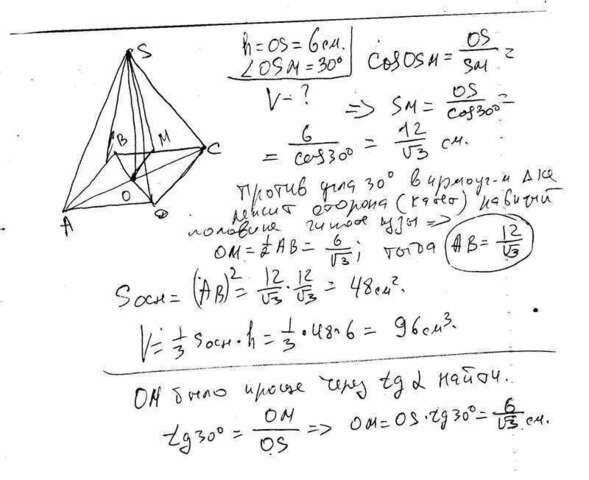 S
B
M
C
O
A
D
h = OS = 6 см.
∠OSM = 30°
V = ?
cos OSM = OS/SM =
=> SM = OS/cos30° =
= 6/cos30° = 12/√3 см.
Против угла 30° в прямоуг-м Δ-ке
лежит сторона (катет) равный
половине гипотенузы =>
OM = ½ AB = 6/√3; тогда AB = 12/√3
Sосн = (AB)² = 12/√3 · 12/√3 = 48 см².
V = 1/3 Sосн · h = 1/3 · 48 · 6 = 96 см³.
OM было проще через tg α найти.
tg 30° = OM/OS => OM = OS · tg 30° = 6/√3 см.